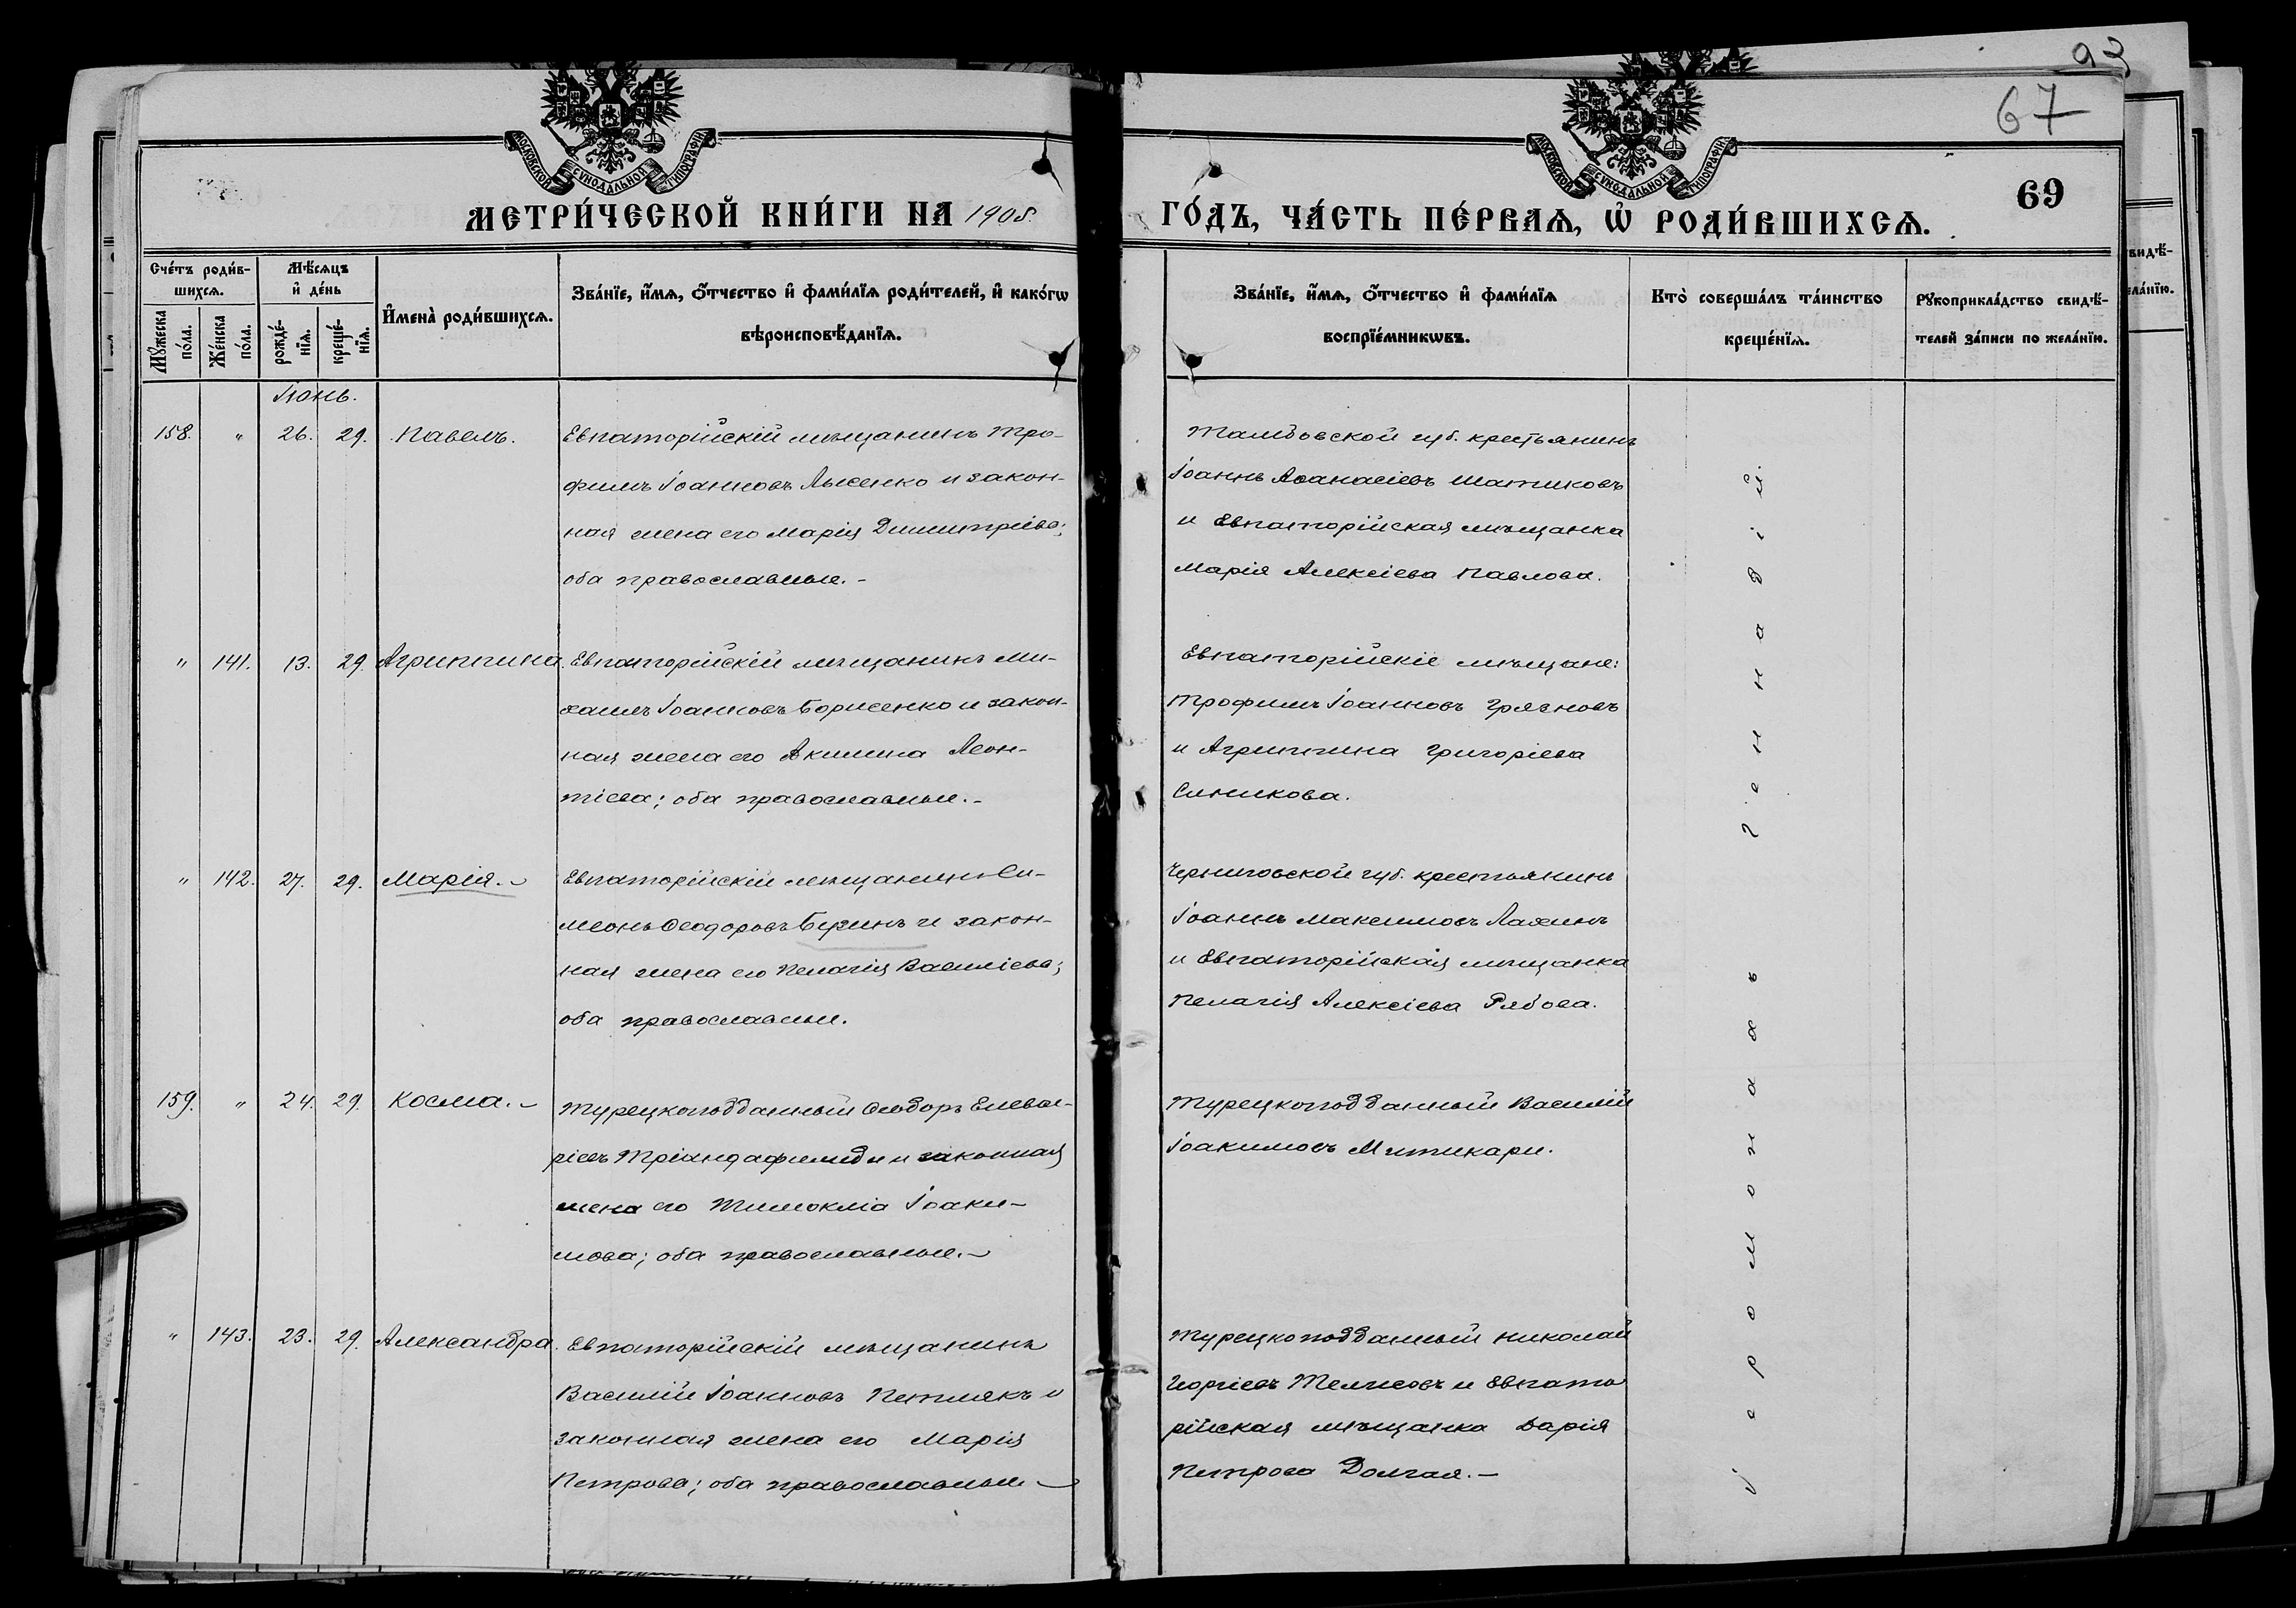 93
67
69
МОСКОВСКОЙ СѴНОДАЛЬНОЙ ТИПОГРАФІИ
МОСКОВСКОЙ СѴНОДАЛЬНОЙ ТИПОГРАФІИ
МЕТРИ́ЧЕСКОЙ КНИ́ГИ НА 1908.
ГО́ДЪ, ЧА́СТЬ ПЕ́РВАѦ, Ѡ҆ РОДИ́ВШИХСѦ.
Сче́тъ роди́в-
шихсѧ.
Мꙋ́жеска
по́ла.
Же́нска
по́ла.
Мѣ́сѧцъ
и҆ де́нь
рожде́-
нїѧ.
креще́-
нїѧ.
И҆мена̀ роди́вшихсѧ.
Зва́нїе, и҆́мѧ, ѻ҆́тчество и҆ фами́лїѧ роди́телей, и҆ како́гѡ
вѣроисповѣ́данїѧ.
Зва́нїе, и҆́мѧ, ѻ҆́тчество и҆ фами́лїѧ
воспрїе́мникѡвъ.
Кто̀ соверша́лъ та́инство
креще́нїѧ.
Рꙋкоприкла́дство свидѣ́-
телей за́писи по жела́нїю.
Іюнь.
158. " 26. 29. Павелъ.
Евпаторійскій мѣщанинъ Тро-
фимъ Іоанновъ Лысенко и закон-
ная жена его Марія Димитріева;
оба православные.-
Тамбовской губ. крестьянинъ
Іоаннъ Аѳанасіевъ Шатиковъ
и Евпаторійская мѣщанка
Марія Алексіева Павлова.
" 141. 13. 29. Агриппина.
Евпаторійскій мѣщанинъ Ми-
хаилъ Іоанновъ Борисенко и закон-
ная жена его Акилина Леон-
тіева; оба православные.-
Евпаторійскіе мѣщане:
Трофимъ Іоанновъ Грязновъ
и Агриппина Григоріева
Синикова.
" 142. 27. 29. Марія.-
Евпаторійскій мѣщанинъ Си-
меонъ Ѳеодоровъ Бузинъ и закон-
ная жена его Пелагія Василіева;
оба православные.
Черниговской губ. крестьянинъ
Іоаннъ Максимовъ Лахинъ
и Евпаторійская мѣщанка
Пелагія Алексіева Рябова.
159. " 24. 29. Косма.-
Турецкоподданный Ѳеодоръ Елевѳе-
ріевъ Тріандафилиди и законная
жена его Тимоклія Іоаки-
мова; оба православные.-
Турецкоподданный Василій
Іоакимовъ Митикари.
" 143. 23. 29. Александра.
Евпаторійскій мѣщанинъ
Василій Іоанновъ Петлякъ и
законная жена его Марія
Петрова; оба православные-
Турецкоподданный Николай
Георгіевъ Телисовъ и Евпато
рійская мѣщанка Дарія
Петрова Долгая.-
Іеромонахъ Геннадій.